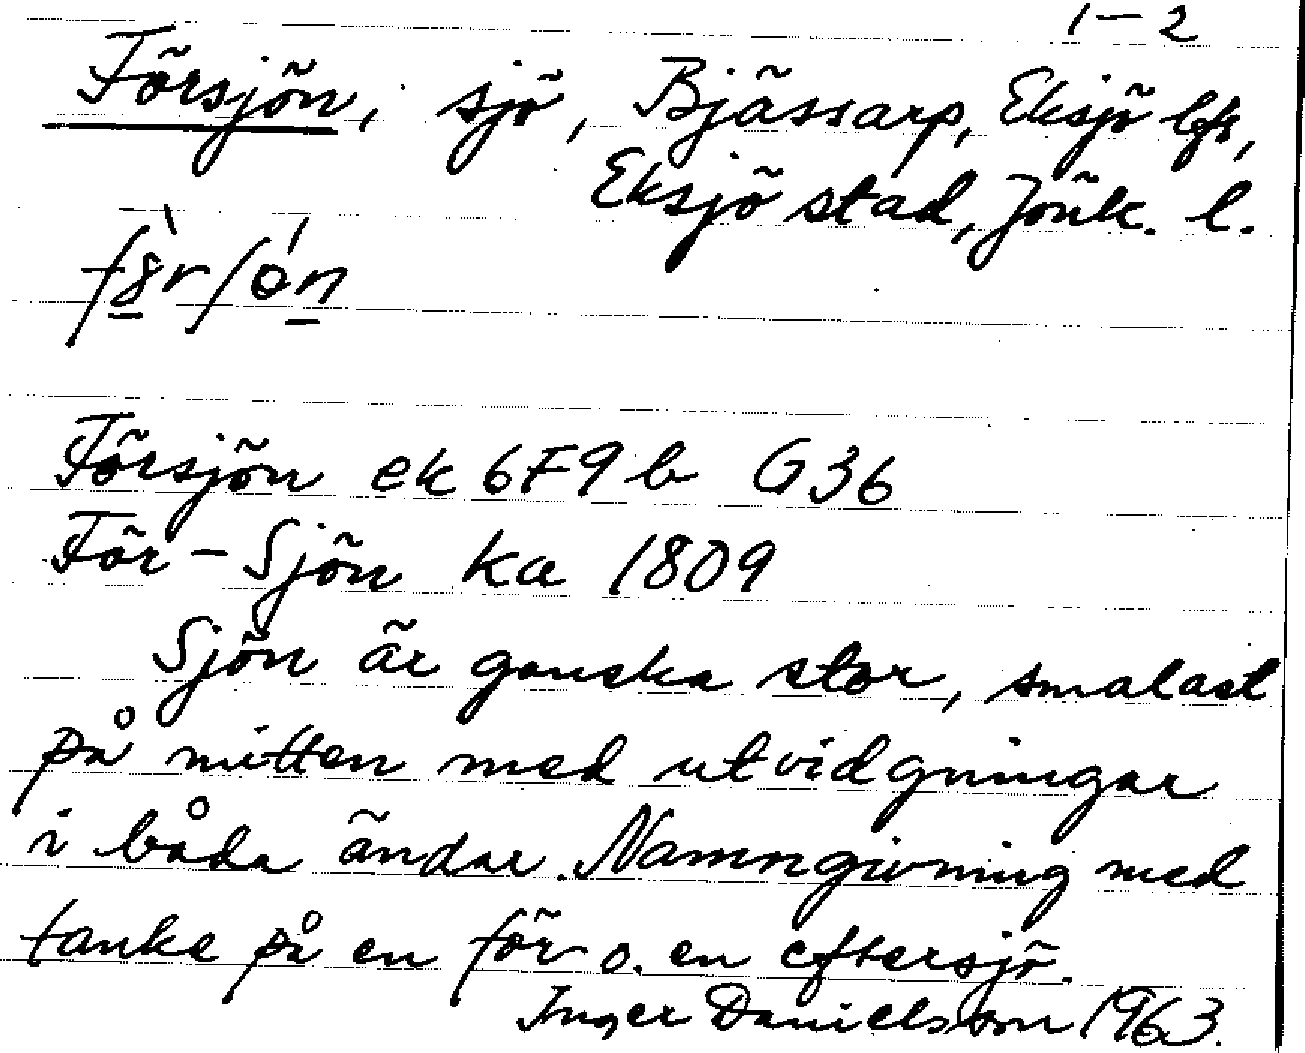 1-2
Försjön, sjö, Bjässarp, Eksjö lfs,
Eksjö stad, Jönk. l.
Försjön ek 6F9b G36
För-Sjön ka 1809
Sjön är ganska stor, smalast
på mitten med utvidgningar
i båda ändar. Namngivning med
tanke på en för- o. en eftersjö.
Inger Danielsson 1963.